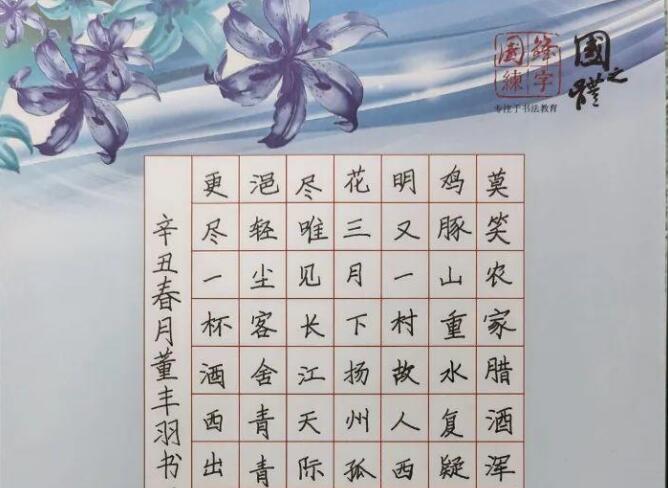 國鋒
練字
专注于书法教育
國之體
莫笑农家腊酒浑
鸡豚山重水复疑
明又一村故人西
花三月下扬州孤
尽唯见长江天际
浥轻尘客舍青青
更尽一杯酒西出
辛丑春月董丰羽书